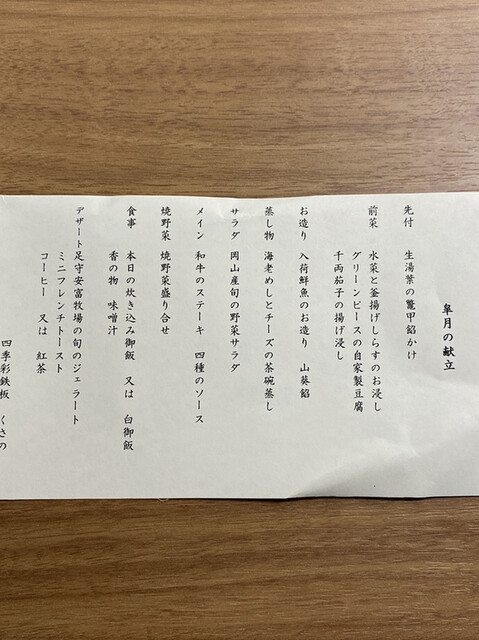 皐月の献立
先付　生湯葉の鼈甲餡かけ
前菜　水菜と釜揚げしらすのお浸し
グリーンピースの自家製豆腐
千両茄子の揚げ浸し
お造り　入荷鮮魚のお造り　山葵餡
蒸し物　海老めしとチーズの茶碗蒸し
サラダ　岡山産旬の野菜サラダ
メイン　和牛のステーキ　四種のソース
焼野菜　焼野菜盛り合せ
食事　本日の炊き込み御飯　又は　白御飯
香の物　味噌汁
デザート　足守安富牧場の旬のジェラート
ミニフレンチトースト
コーヒー　又は　紅茶
四季彩鉄板　くさの